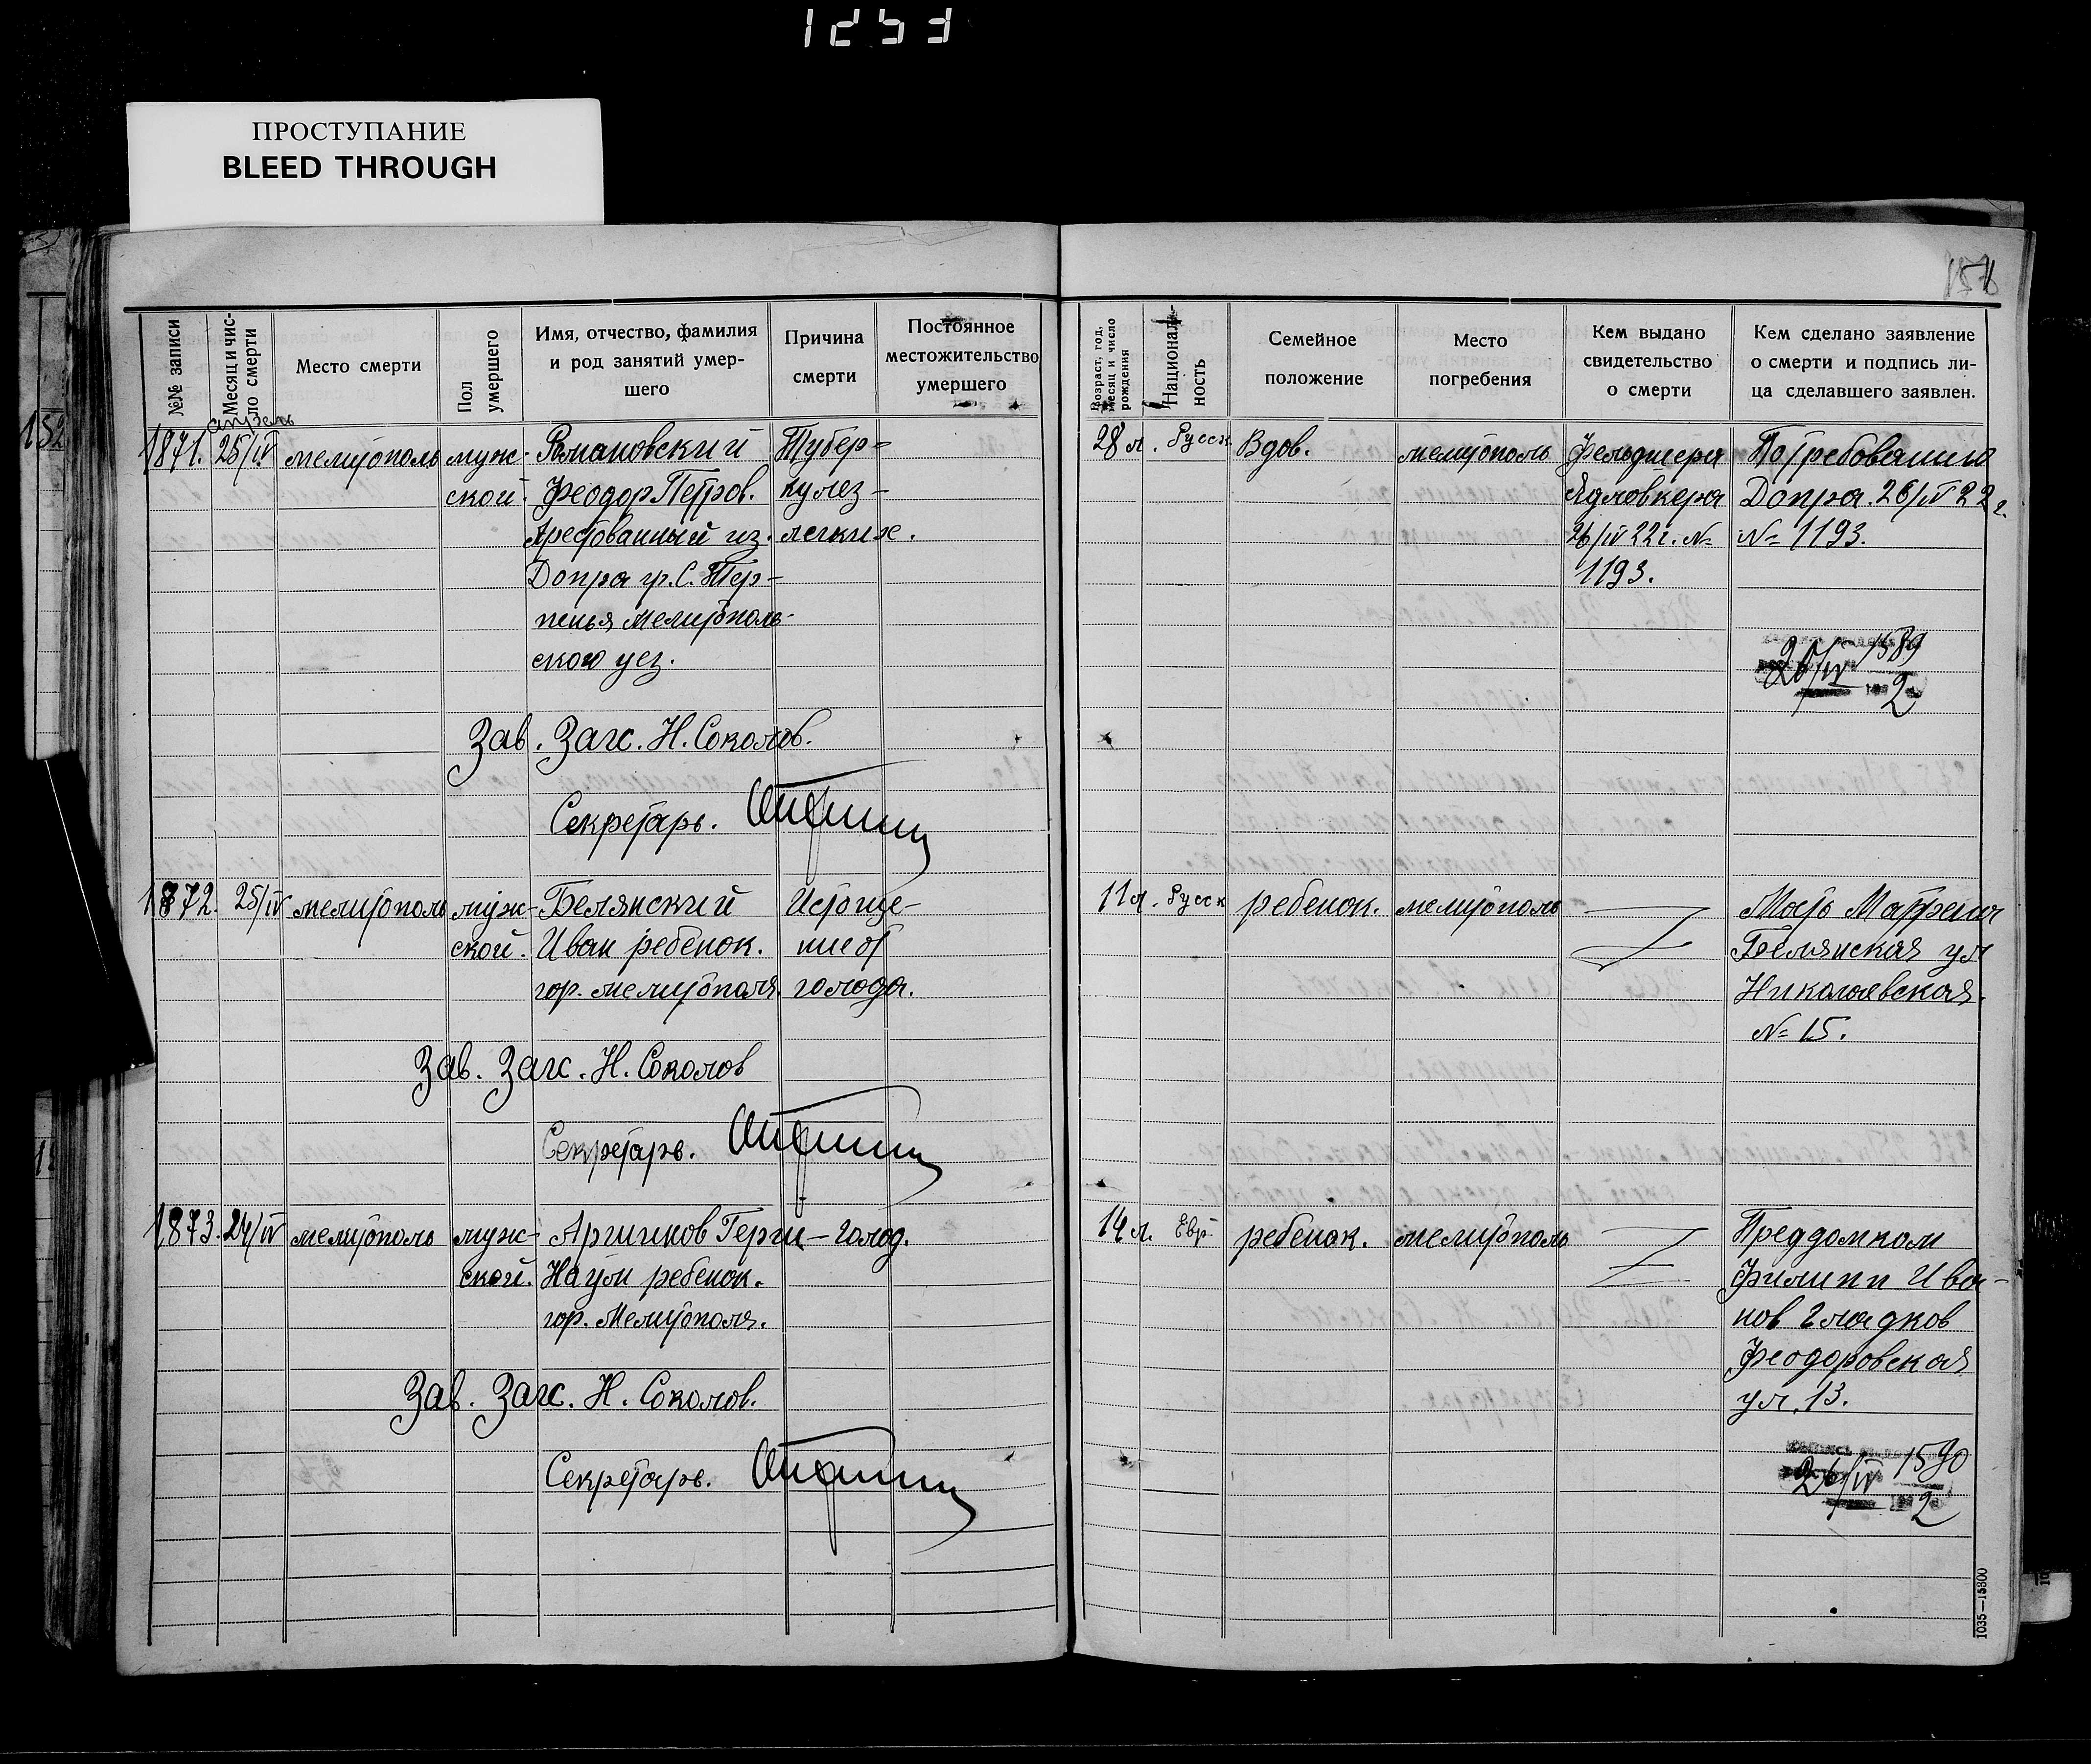 1253
ПРОСТУПАНИЕ
BLEED THROUGH
157
№№ записи
Месяц и чис-
ло смерти
Место смерти
Пол
умершего
Имя, отчество, фамилия
и род занятий умер-
шего
Причина
смерти
Постоянное
местожительство
умершего
Возраст, год,
месяц и число
рождения
Националь-
ность
Семейное
положение
Место
погребения
Кем выдано
свидетельство
о смерти
Кем сделано заявление
о смерти и подпись ли-
ца сделавшего заявлен.
152
апрель
1871. 25/IV мелитополь муж- Романовский Тубер- 28 л. Русск. Вдов. мелитополь Фельдшера По требованию
ской. Феодор Петров. кулез Ядловкера Допра. 26/IV 22 г.
Арестованный из легких. 26/IV 22 г. № № 1193.
Допра гр. С. Тер- 1193.
пенья мелитополь-
ского уез.
26/IV 1589
2
Зав. Загс. Н. Соколов.
Секретарь.
1872. 25/IV мелитополь муж- Белянский Истоще- 11 л. Русск ребенок. мелитополь Мать
ской. Иван ребенок. ние от Белянская ул
гор. мелитополя. голода. Николаевская.
№ 15.
Зав. Загс. Н. Соколов
Секретарь.
1873. 24/IV мелитополь муж- голод. 14 л. Евр ребенок. мелитополь Преддомком
ской. Наум ребенок. Филипп Ива-
гор. Мелитополя. нов Гладков
Феодоровская
ул. 13.
Зав. Загс. Н. Соколов.
Секретарь.
26/IV 1590
2
1035—15800